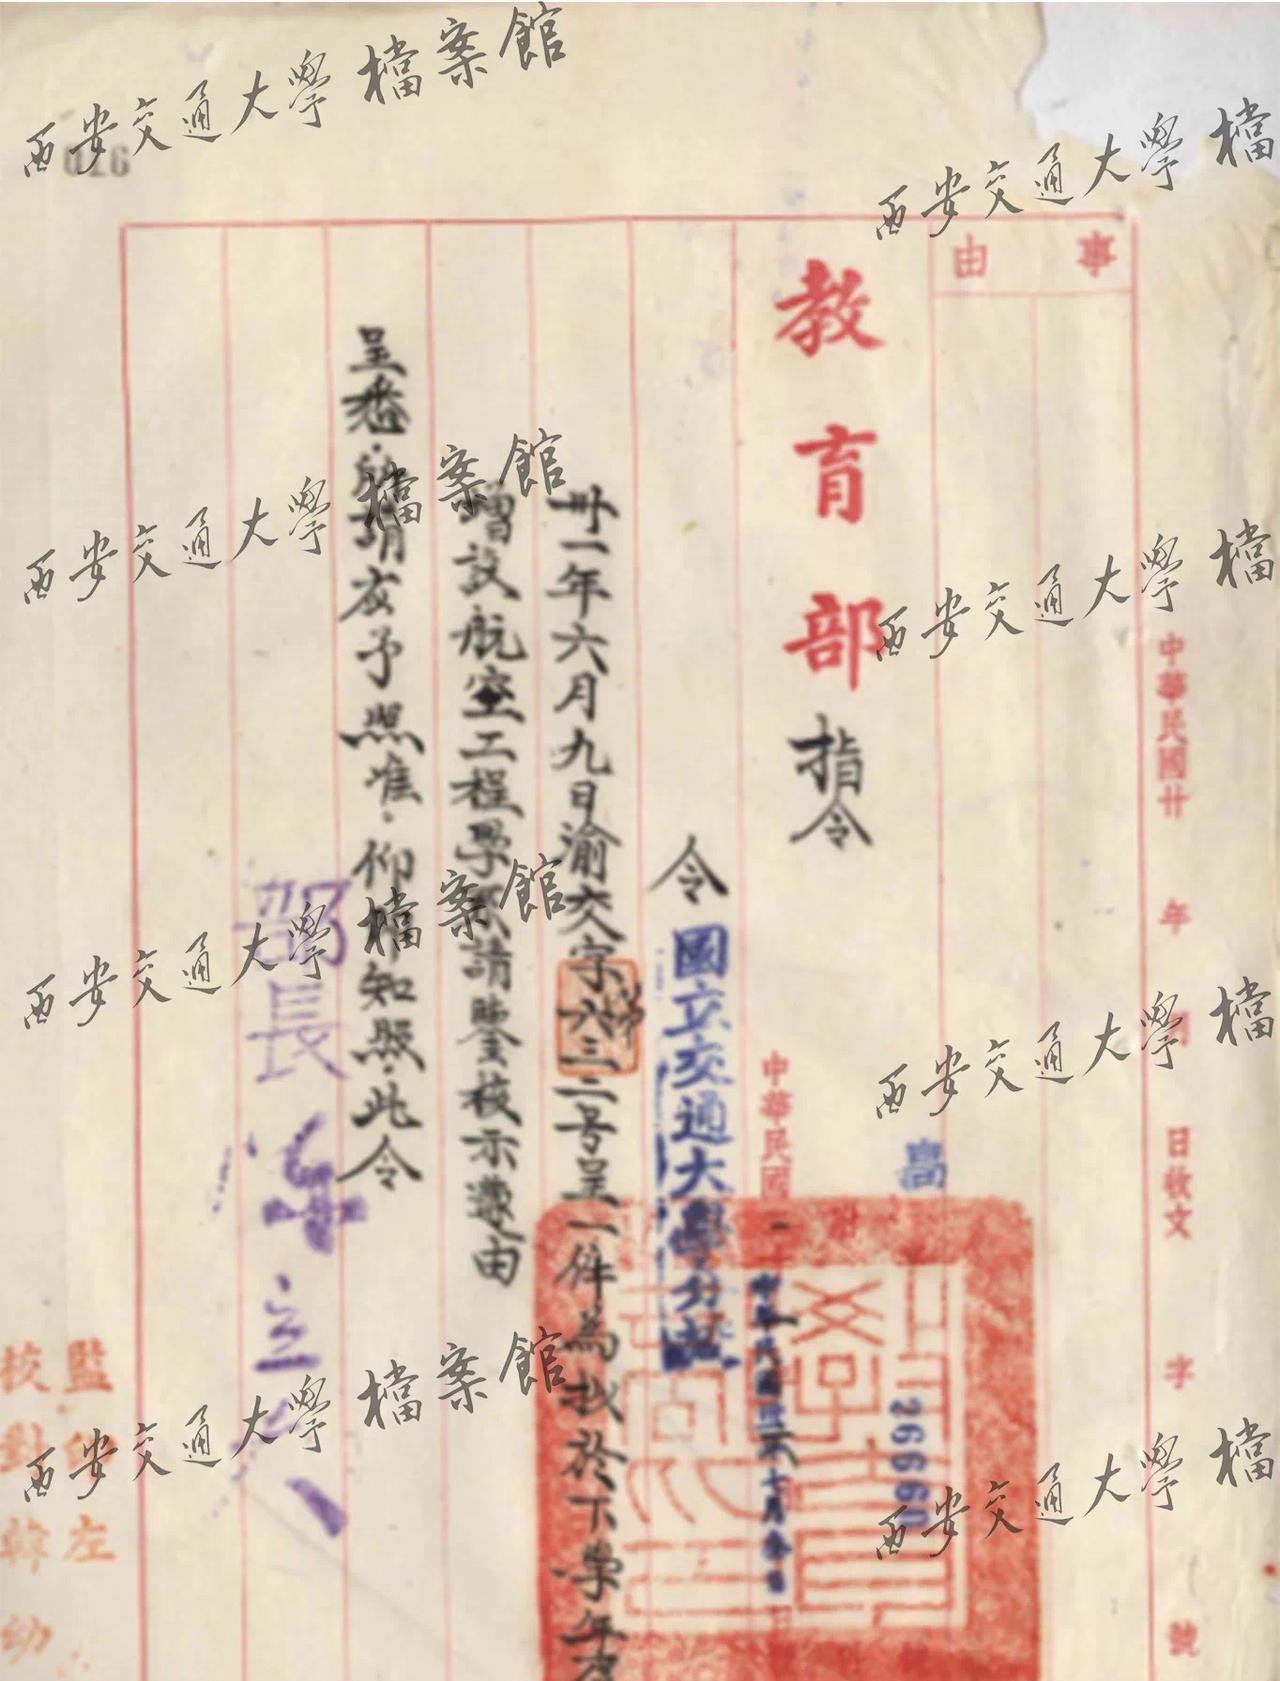 事由
中華民國廿 年 月 日收文 字 號
教育部指令
高
26660
中華民國
中華民國卅一年七月 日
令國立交通大學分校
卅一年六月九日渝文字第六三二号呈一件為拟於下學年度
增設航空工程學系請鑒核示遵由
呈悉.所請應予照准.仰即知照.此令
部長陳立夫
監印左
校對韓幼
016
西安交通大學檔案館
西安交通大學檔
西安交通大學檔案館
西安交通大學檔
西安交通大學檔案館
西安交通大學檔
西安交通大學檔案館
西安交通大學檔